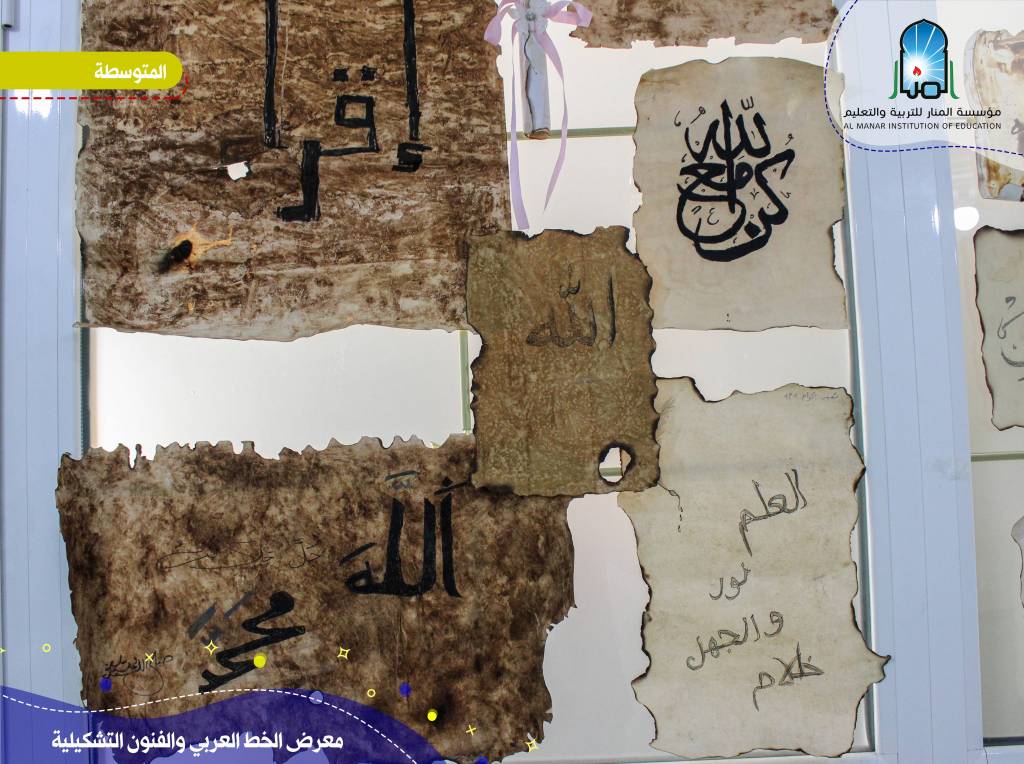 المتوسطة
المنار
مؤسسة المنار للتربية والتعليم
AL MANAR INSTITUTION OF EDUCATION
إقرا
كن مع الله
الله
العلم
نور
والجهل
ظلام
اللَّه
جل جلاله
محمد
معرض الخط العربي والفنون التشكيلية